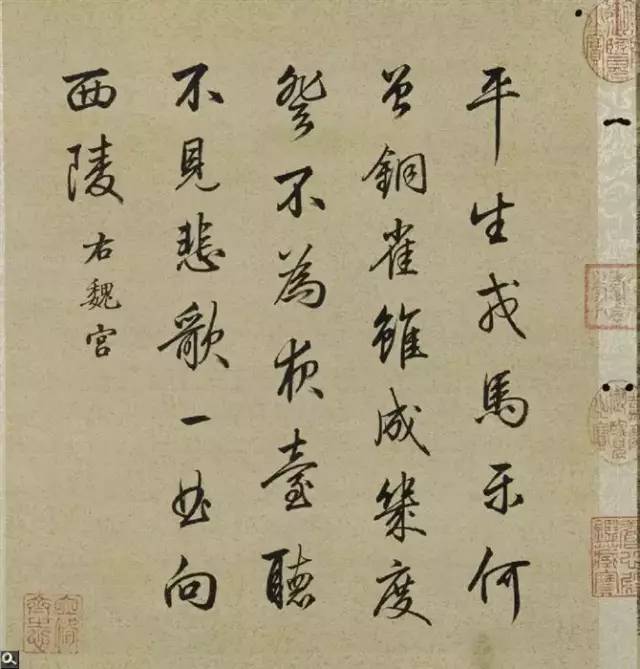 平生戎馬樂何
曾銅雀雖成幾度
登不為夜臺聽
不見悲歌一曲向
西陵
右魏宮